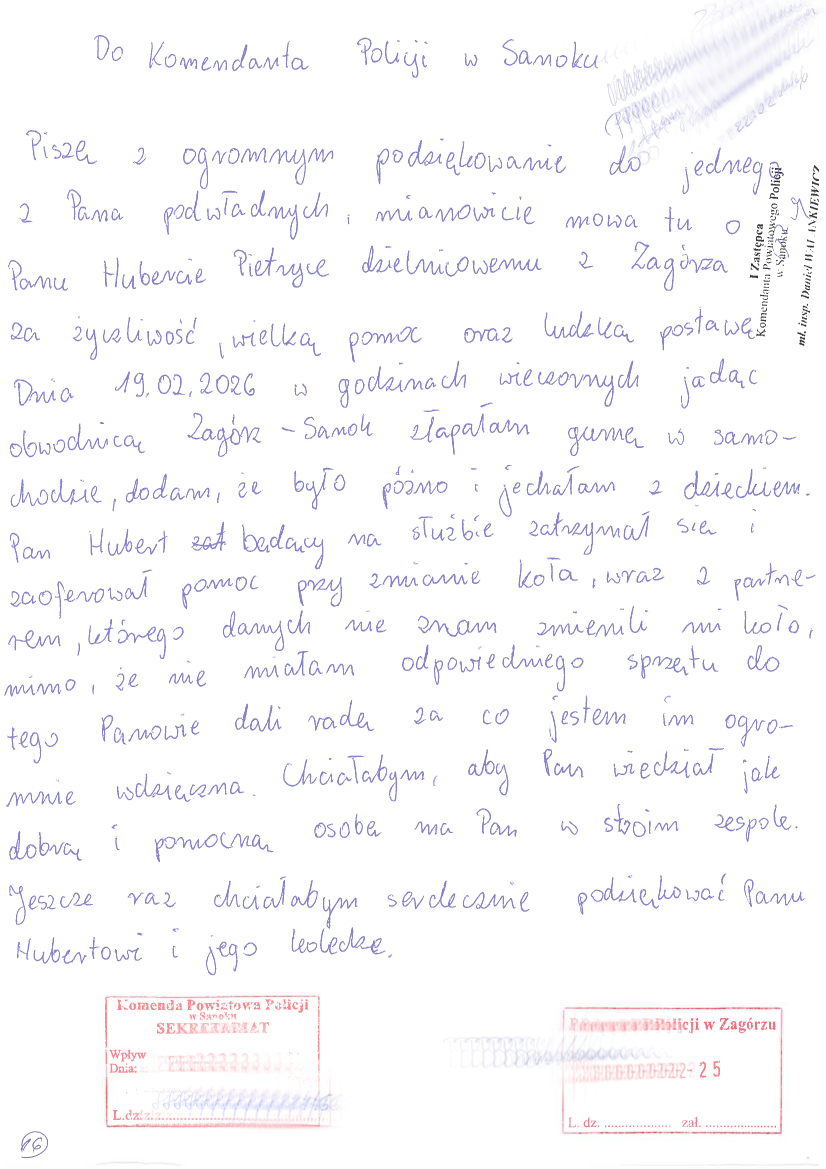 Do Komendanta Policji w Sanoku
Piszę z ogromnym podziękowanie do jednego
z Pana podwładnych, mianowicie mowa tu o
Panu Hubercie Pietryce dzielnicowemu z Zagórza
za życzliwość, wielką pomoc oraz ludzką postawę.
Dnia 19.02.2026 w godzinach wieczornych jadąc
obwodnicą Zagórz - Sanok złapałam gumę w samo-
chodzie, dodam, że było późno i jechałam z dzieckiem.
Pan Hubert zat będący na służbie zatrzymał się i
zaoferował pomoc przy zmianie koła, wraz z partne-
rem, którego danych nie znam zmienili mi koło,
mimo, że nie miałam odpowiedniego sprzętu do
tego Panowie dali radę za co jestem im ogro-
mnie wdzięczna. Chciałabym, aby Pan wiedział jak
dobrą i pomocną osobę ma Pan w swoim zespole.
Jeszcze raz chciałabym serdecznie podziękować Panu
Hubertowi i jego koledze.
I Zastępca
Komendanta Powiatowego Policji
w Sanoku
mł. insp. Daniel
Komenda Powiatowa Policji
w Sanoku
SEKRETARIAT
Wpływ
Dnia:
L.dz
Policji w Zagórzu
25
L. dz. .................... zał. ....................
16